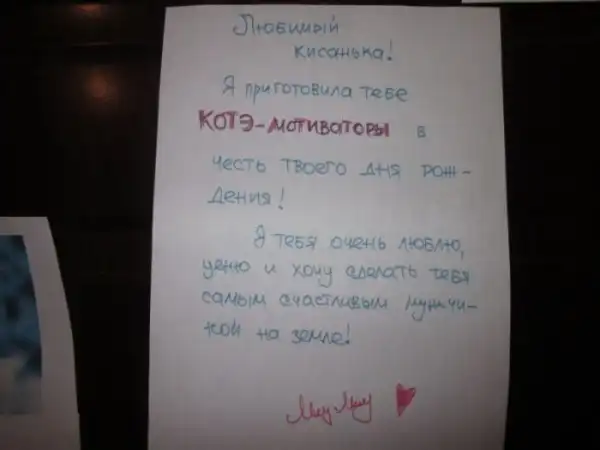 Любимый
кисонька!
Я приготовила тебе
КОТЭ-мотиваторы в
честь твоего дня рож-
дения!
Я тебя очень люблю,
ценю и хочу сделать тебя
самым счастливым мужчи-
ной на земле!
Мяу Мяу